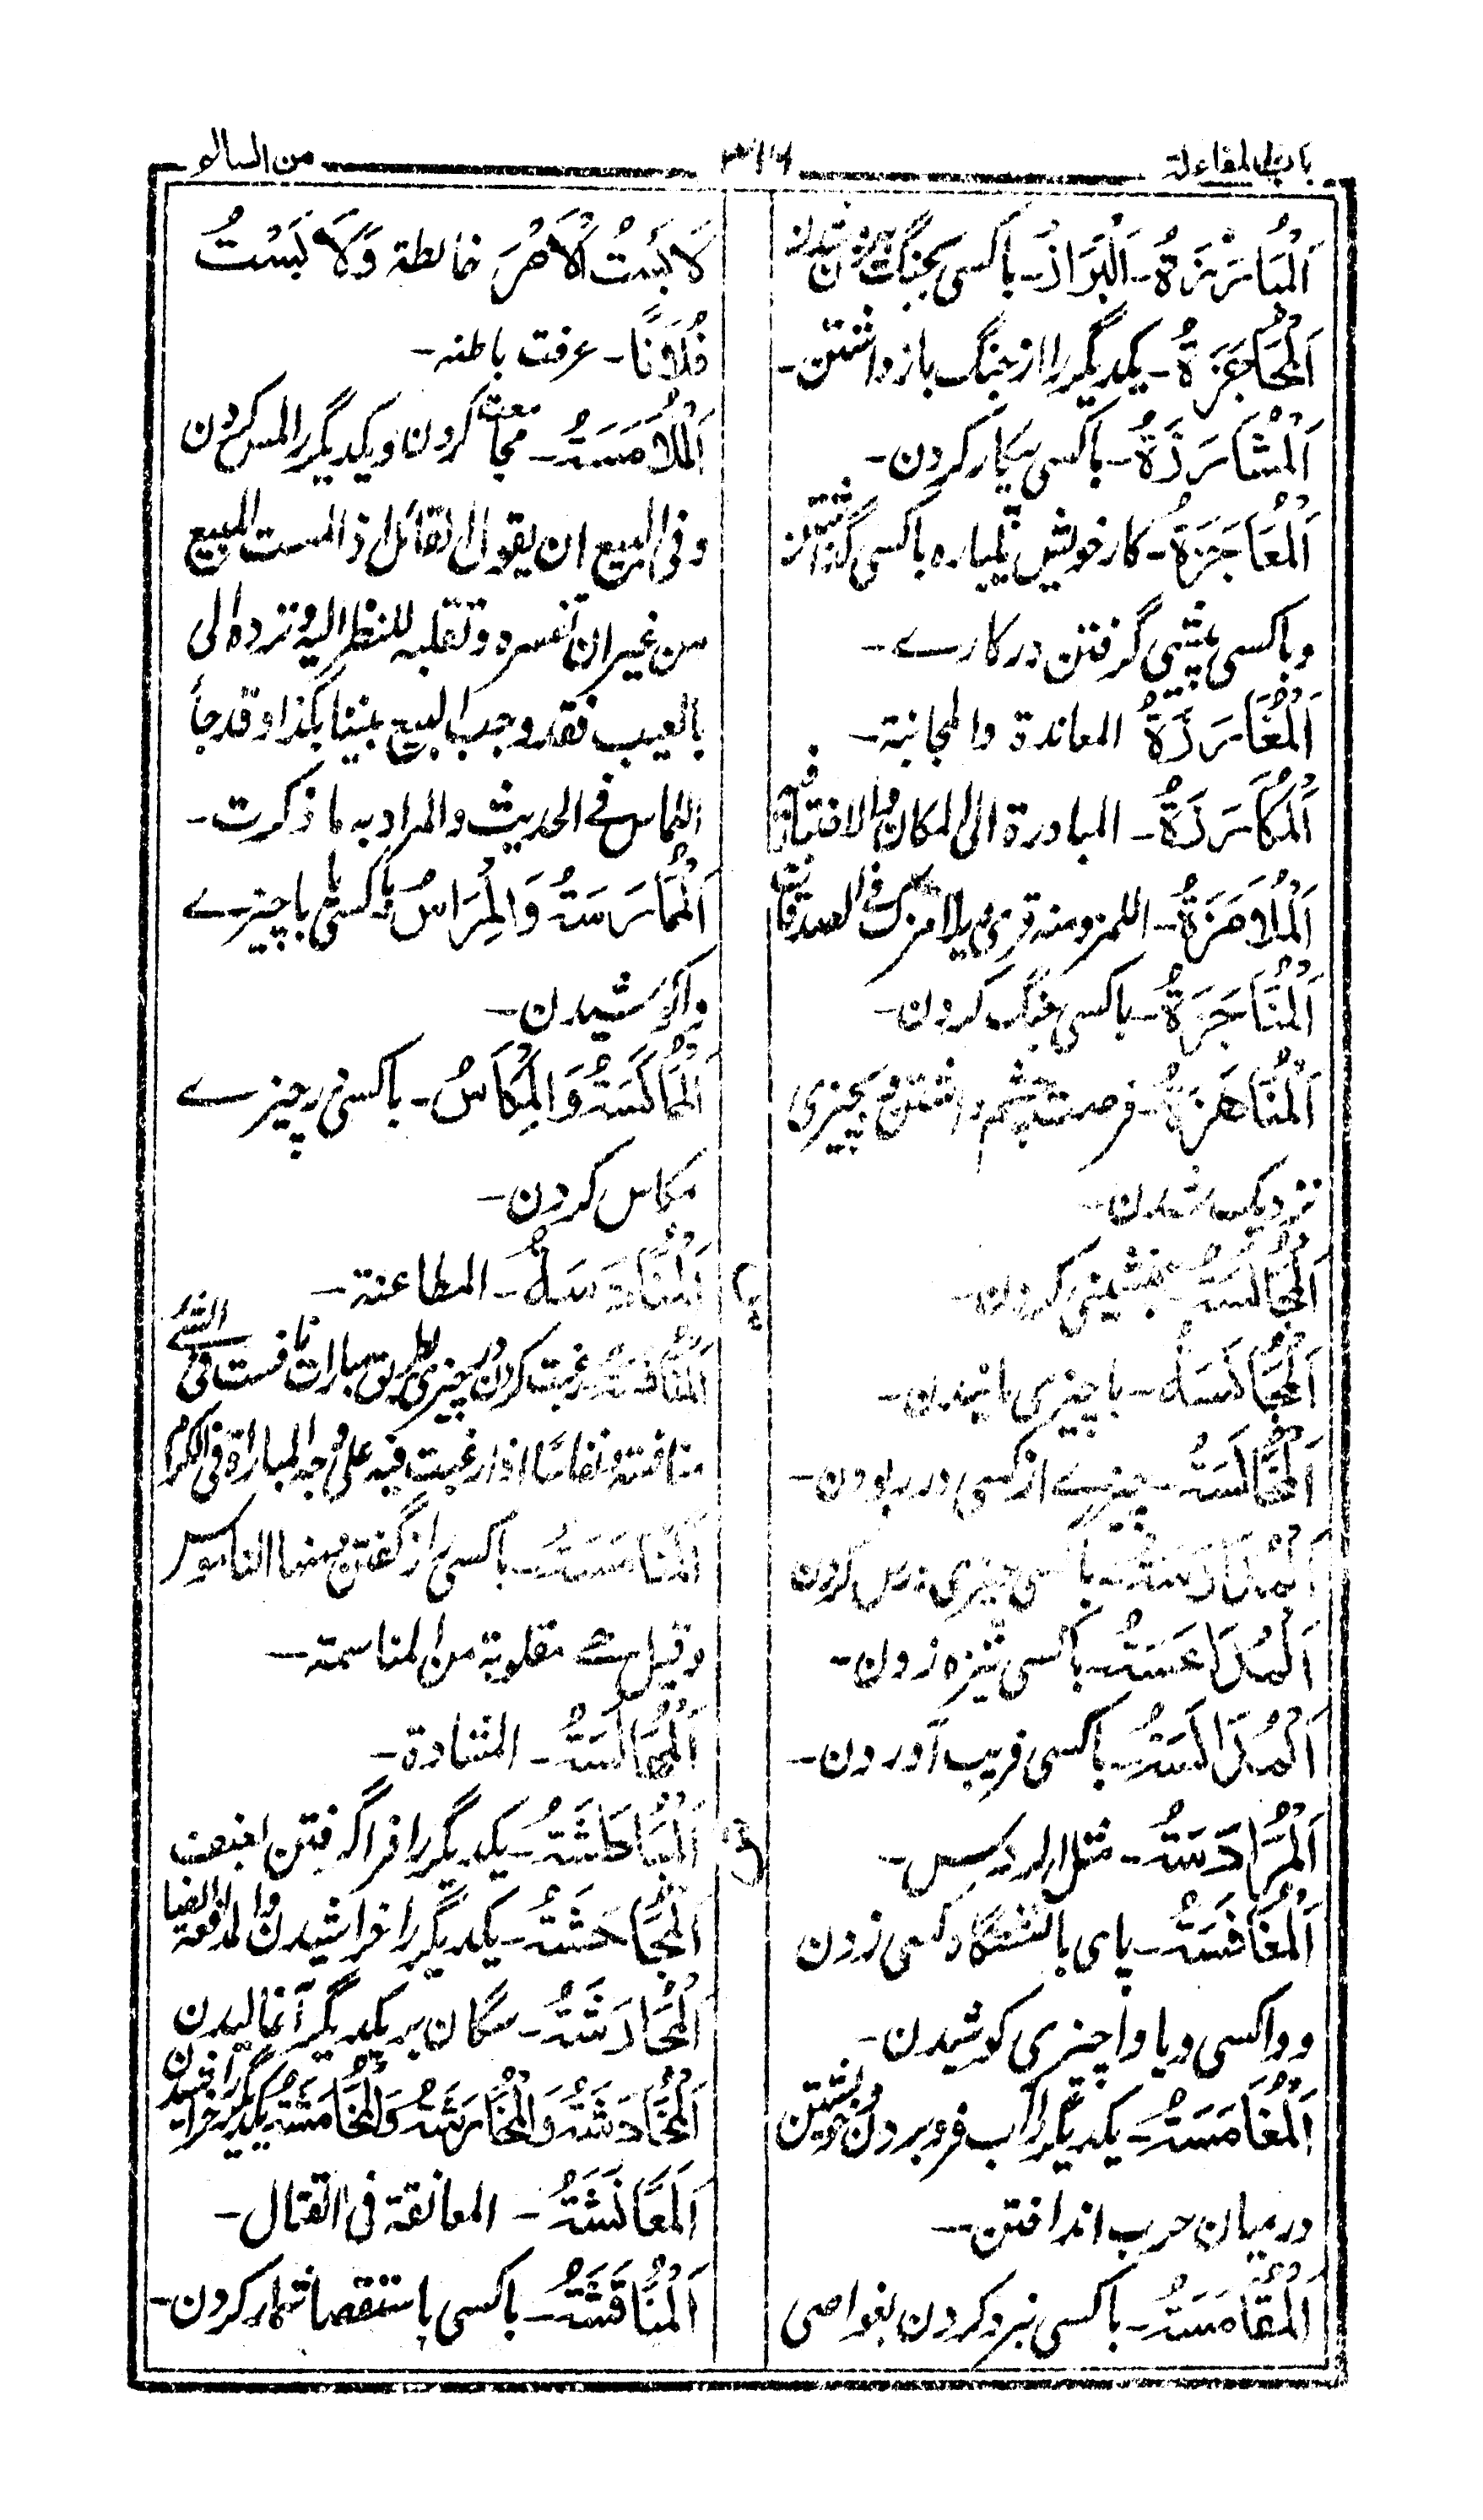 باب المفاعلة
٣١٦
من السالم
اَلْمُبَارَزَةُ - اَلْبِرَازُ - باکسی بجنگ بیرون شدن
اَلْمُحَاجَزَةُ - یکدیگر را از جنگ باز داشتن -
اَلْمُشَارَزَةُ - باکسی پیکار کردن -
اَلْمُعَاجَزَةُ - کار خویش یکباره باکسی گذاشتن
و باکسی پیشی گرفتن در کارے -
اَلْمُغَارَزَةُ المعاندة والمجانبة -
اَلْمُكَارَزَةُ - المبادرة الى المكان والاختباء فيه
اَلْمُلَامَزَةُ - اللمز ومنه قرئ يلامزك فى الصدقات
اَلْمُنَاجَزَةُ - باکسی جنگ کردن -
اَلْمُنَاهَزَةُ - فرصت چشم داشتن و بچیزی
نزدیک شدن -
اَلْمُجَالَسَةُ - همنشینی کردن -
اَلْمُجَانَسَةُ - با چیزی مانیدن -
اَلْمُخَالَسَةُ - چیزے از کسی در ربودن -
اَلْمُدَارَسَةُ - با کسی چیزی درس کردن
اَلْمُدَاعَسَةُ - باکسی نیزه زدن -
اَلْمُدَالَسَةُ - باکسی فریب آوردن -
اَلْمُرَادَسَةُ - مثل الردس -
اَلْمُعَافَسَةُ - پای بانشستگاه کسی زدن
و واکسی و یا واچیزی کوشیدن -
اَلْمُغَامَسَةُ - یکدیگر را بآب فرو بردن و خویشتن
درمیان حرب انداختن -
اَلْمُقَامَسَةُ - باکسی نبرد کردن بغواصی
لَابَسْتُ الْاَمْرَ خالطته وَلَابَسْتُ
فُلَانًا - عرفت باطنه -
اَلْمُلَامَسَةُ - مجامعت کردن و یکدیگر را لمس کردن
وفى البيع ان يقول القائل اذا لمست المبيع
من غير ان تنشره وتقلبه للنظر اليه وترده الى
بالعيب فقد وجب البيع بيننا بكذا وقد جأ
اللماس فى الحديث والمراد به ما ذكرت -
اَلْمُمَارَسَةُ وَالْمِرَاسُ باکسی یا با چیزے
واکوشیدن -
اَلْمُمَاكَسَةُ وَالْمِكَاسُ - باکسی در چیزے
مکاس کردن -
اَلْمُنَادَسَةُ - المطاعنة -
اَلْمُنَافَسَةُ رغبت کردن در چیزی بطریق مبارات نافست فى الشئ
منافسة ونفاسا اذا رغبت فيه على وجه المباراة فى الكرم
اَلْمُنَامَسَةُ - باکسی راز گفتن و منها الناموس
وقيل هے مقلوبة من المناسمة -
اَلْمُمَالَسَةُ - المشادة -
ش
اَلْمُبَاطَشَةُ - یکدیگر را فرا گرفتن بعنف
اَلْمُجَاحَشَةُ - یکدیگر را خراشیدن والمدافعة ایضا
اَلْمُحَارَشَةُ - سگان بر یکدیگر آغالیدن
اَلْمُخَادَشَةُ وَالْمُخَارَشَةُ وَالْمُخَامَشَةُ یکدیگر را خراشیدن
اَلْمُعَانَشَةُ - المعانقة فى القتال -
اَلْمُنَاقَشَةُ - باکسی باستقصا شمار کردن -